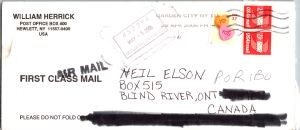 WILLIAM HERRICK
POST OFFICE BOX 400
HEWLETT, NY 11557-0400
USA
GARDEN CITY NY
AIR MAIL
FIRST CLASS MAIL
NEIL ELSON PORIBO
BOX 515
BLIND RIVER, ONT
CANADA
PLEASE DO NOT FOLD